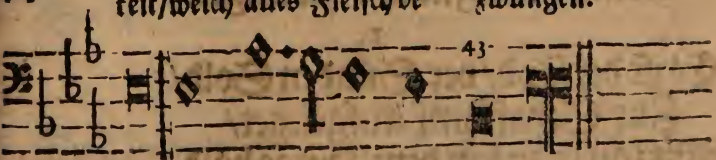 keit/welch alles Fleisch be zwungen.
43